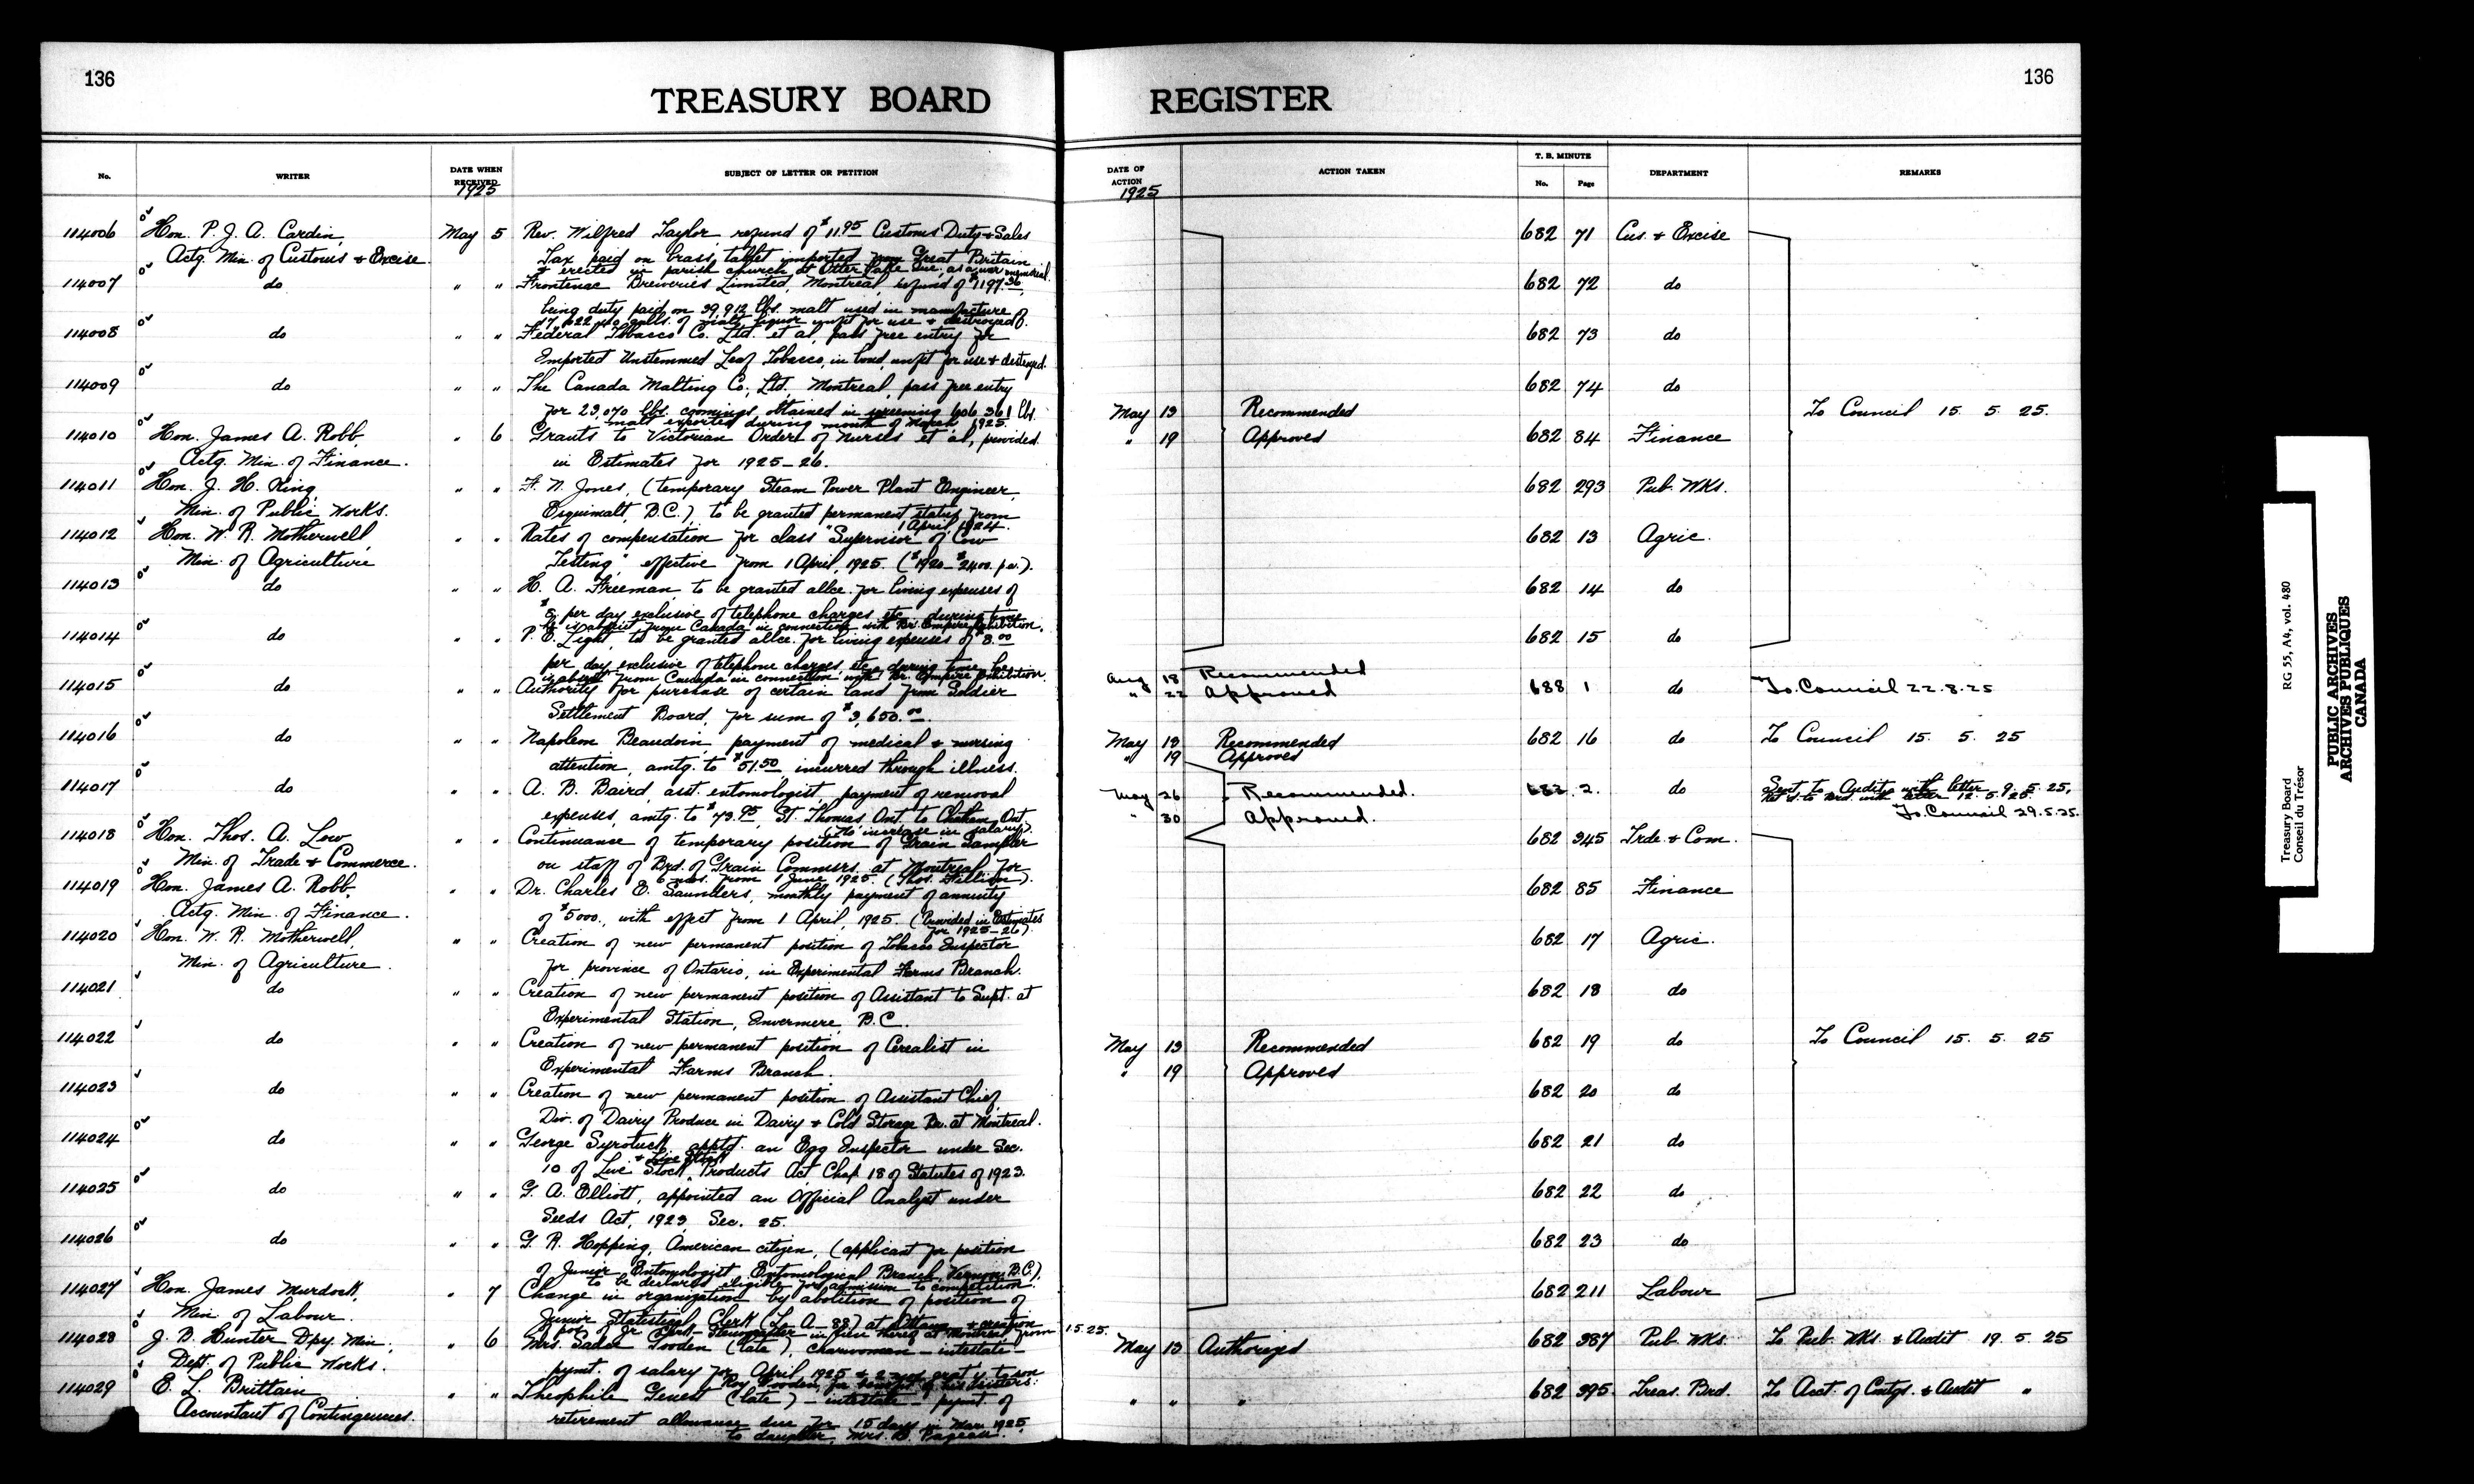 136
136
TREASURY BOARD REGISTER
No.
WRITER
DATE WHEN RECEIVED
1925
SUBJECT OF LETTER OR PETITION
DATE OF ACTION
1925
ACTION TAKEN
T. B. MINUTE
No. Page
DEPARTMENT
REMARKS
114006 Hon. P. J. A. Cardin, May 5 Rev. Wilfred Taylor, refund of $11.95 Customs Duty & Sales 682 71 Cus. & Excise
Actg. Min. of Customs & Excise. Tax paid on brass tablet imported from Great Britain
& erected in parish church at Otter Lake Que, as a war memorial
114007 do " " Frontenac Breweries Limited, Montreal, refund of $1197.36, 682 72 do
being duty paid on 39,912 lbs. malt used in manufacture of
galls. of malt liquor unfit for use & destroyed.
114008 do " " Federal Tobacco Co. Ltd. et al, pass free entry for 682 73 do
Imported Unstemmed Leaf Tobacco, in bond, unfit for use & destroyed.
114009 do " " The Canada Malting Co., Ltd. Montreal, pass free entry 682 74 do
for 23,070 lbs. coomings obtained in screening 606,361 lbs. May 13 Recommended To Council 15. 5. 25.
malt exported during month of March, 1925.
114010 Hon. James A. Robb, " 6 Grants to Victorian Order of Nurses et al, provided " 19 Approved 682 84 Finance
Actg. Min. of Finance. in Estimates for 1925-26.
114011 Hon. J. H. King, " " F. N. Jones, (temporary Steam Power Plant Engineer, 682 293 Pub. Wks.
Min. of Public Works. Esquimalt, B.C.) to be granted permanent status from
1 April, 1924.
114012 Hon. W. R. Motherwell, " " Rates of compensation for class "Supervisor of Cow 682 13 Agric.
Min. of Agriculture Testing," effective from 1 April, 1925. ($1920-$2400. p.a.).
114013 do " " H. A. Freeman, to be granted allce. for living expenses of 682 14 do
per day exclusive of telephone charges etc. during time
he is absent from Canada in connection with Br. Empire Exhibition.
114014 do " " P. E. Light, to be granted allce. for living expenses of $8.00 682 15 do
per day exclusive of telephone charges, etc. during time he
is absent from Canada in connection with Br. Empire Exhibition.
114015 do " " Authority for purchase of certain land from Soldier Aug 18 Recommended
Settlement Board, for sum of $3,650.00. " 22 Approved 688 1 do To Council 22.8.25
114016 do " " Napoleon Beaudoin, payment of medical & nursing May 13 Recommended 682 16 do To Council 15. 5. 25
attention, amtg. to $51.50 incurred through illness. " 19 Approved
114017 do " " A. B. Baird, asst. entomologist, payment of removal May 26 Recommended. 2. do Sent to Audit with letter 9. 5. 25,
expenses, amtg. to $73.95, St. Thomas Ont. to Chatham, Ont. " 30 Approved. To Council 29.5.25.
(No increase in salary).
114018 Hon. Thos. A. Low " " Continuance of temporary position of Grain Sampler 682 345 Trde. & Com.
Min. of Trade & Commerce. on staff of Brd. of Grain Commsrs. at Montreal for
6 mos. from 1 June 1925. (Thos. Fillion).
114019 Hon. James A. Robb, " " Dr. Charles E. Saunders, monthly payment of annuity 682 85 Finance
Actg. Min. of Finance. of $5000, with effect from 1 April, 1925. (Provided in Estimates
for 1925-26).
114020 Hon. W. R. Motherwell, " " Creation of new permanent position of Tobacco Inspector 682 17 Agric.
Min. of Agriculture. for province of Ontario, in Experimental Farms Branch.
114021 do " " Creation of new permanent position of Assistant to Supt. at 682 18 do
Experimental Station, Invermere, B.C.
114022 do " " Creation of new permanent position of Cerealist in May 13 Recommended 682 19 do To Council 15. 5. 25
Experimental Farms Branch. " 19 Approved
114023 do " " Creation of new permanent position of Assistant Chief, 682 20 do
Div. of Dairy Produce in Dairy & Cold Storage Br. at Montreal.
114024 do " " George Syrotuck, apptd. an Egg Inspector under Sec. 682 21 do
& Live Stock
10 of Live Stock Products Act, Chap. 18 of Statutes of 1923.
114025 do " " G. A. Elliott, appointed an Official Analyst under 682 22 do
Seeds Act, 1923, Sec. 25.
114026 do " " G. R. Hopping, American citizen, (applicant for position 682 23 do
of Junior Entomologist, Entomological Branch, Vernon, B.C.),
to be declared eligible for admission to competition.
114027 Hon. James Murdock, " 7 Change in organization by abolition of position of 682 211 Labour
Min. of Labour. Junior Statistical Clerk (L. A-88) at Ottawa & creation
pos. of Jr. Clerk-Stenographer in lieu thereof at Montreal from 1.5.25.
114028 J. B. Hunter Dpy. Min., " 6 Mrs. Sadie Gooden (late), charwoman - intestate - May 13 Authorized 682 387 Pub. Wks. To Pub. Wks. & Audit 19. 5. 25
Dept. of Public Works. pymt. of salary for April 1925 & 2 mos. grat'y. to son
Roy Gooden, for benefit of his sisters.
114029 E. L. Brittain " " Theophile Genest (late) - intestate - pymt. of " " " 682 395 Treas. Brd. To Acct. of Cntgs. & Audit "
Accountant of Contingencies. retirement allowance due for 15 days in Mar. 1925,
to daughter, Mrs. B. Pageau.
Treasury Board RG 55, A4, vol. 480
Conseil du Trésor
PUBLIC ARCHIVES
ARCHIVES PUBLIQUES
CANADA